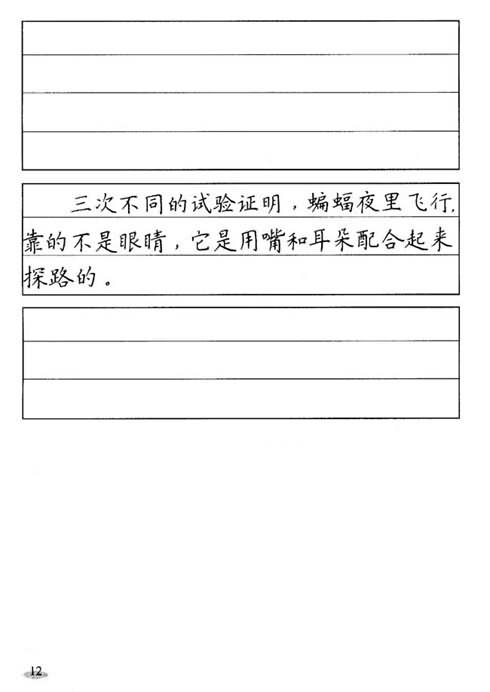 三次不同的试验证明，蝙蝠夜里飞行，
靠的不是眼睛，它是用嘴和耳朵配合起来
探路的。
12